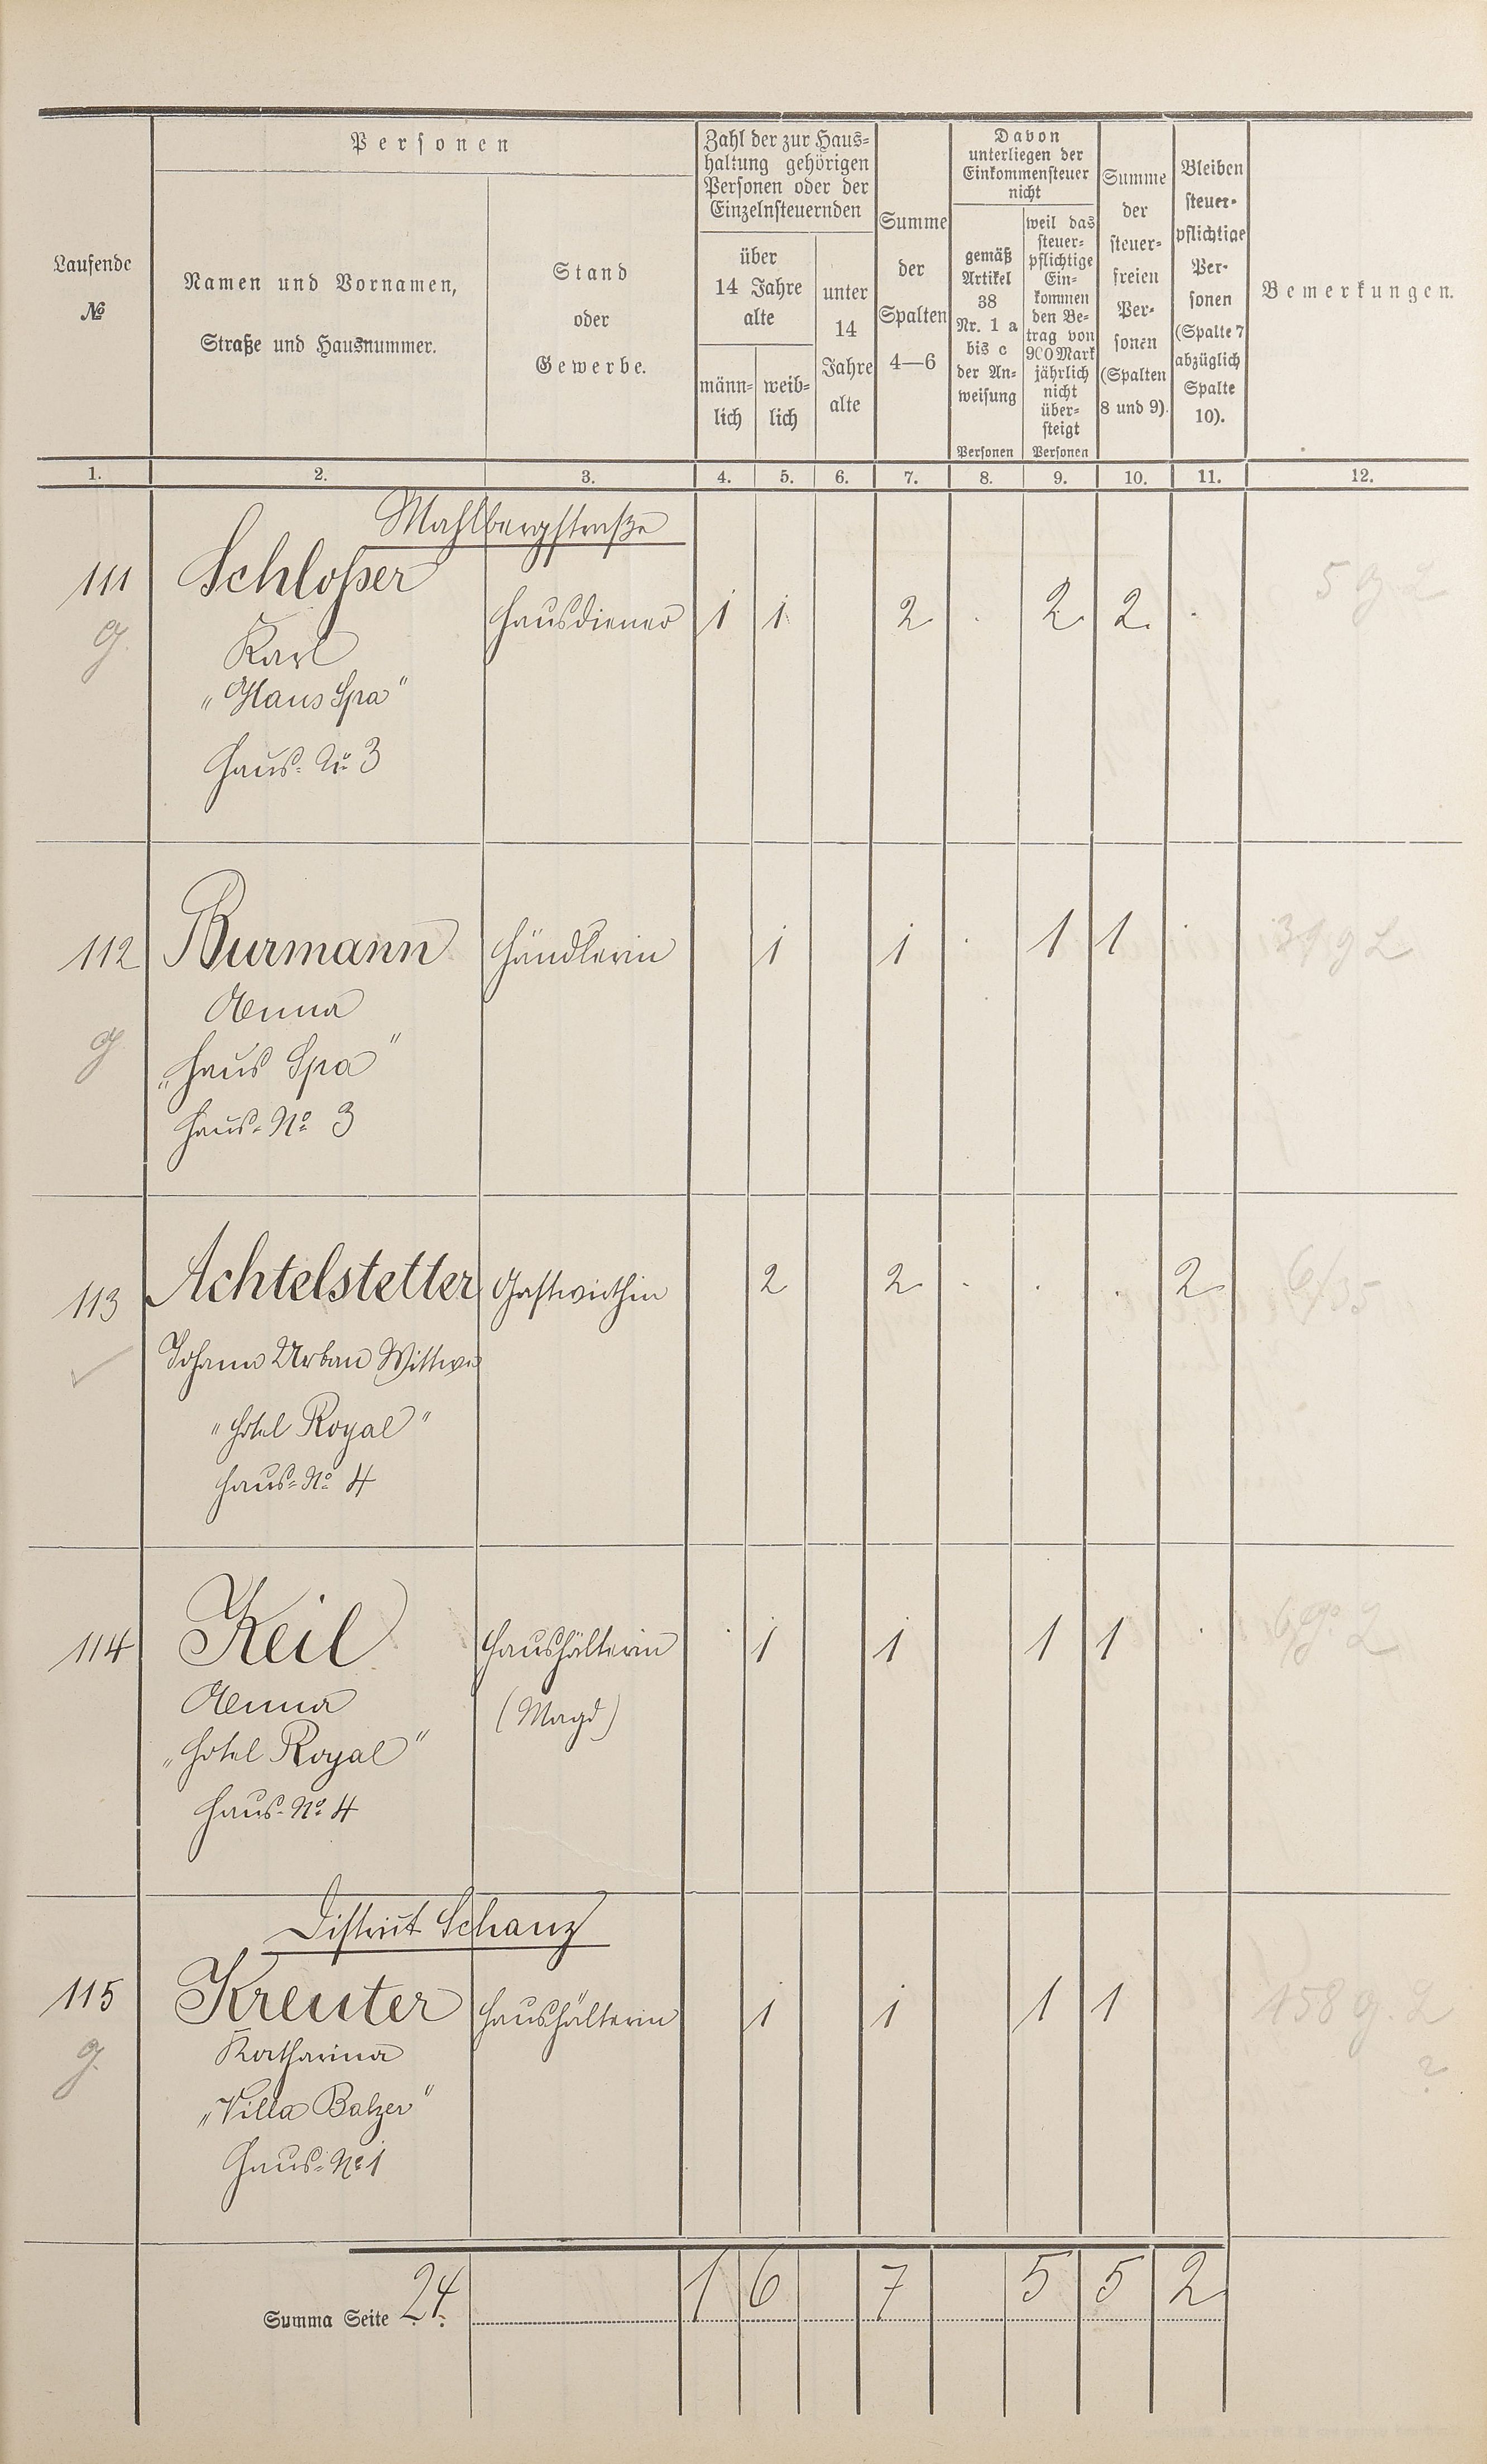 Laufende
№
Personen
Namen und Vornamen,
Straße und Hausnummer.
Stand
oder
Gewerbe.
Zahl der zur Haus-
haltung gehörigen
Personen oder der
Einzelnsteuernden
über
14 Jahre
alte
männ-
lich
weib-
lich
unter
14
Jahre
alte
Summe
der
Spalten
4—6
Davon
unterliegen der
Einkommensteuer
nicht
gemäß
Artikel
38
Nr. 1 a
bis c
der An-
weisung
Personen
weil das
steuer-
pflichtige
Ein-
kommen
den Be-
trag von
900 Mark
jährlich
nicht
über-
steigt
Personen
Summe
der
steuer-
freien
Per-
sonen
(Spalten
8 und 9).
Bleiben
steuer-
pflichtige
Per-
sonen
(Spalte 7
abzüglich
Spalte
10).
Bemerkungen.
1. 2. 3. 4. 5. 6. 7. 8. 9. 10. 11. 12.
Mahlbergstraße
111 Schlosser Hausdiener 1 1 2 . 2 2. . 5 g. L
g. Karl
"Haus Spa"
Haus-№ 3
112 Burmann Händlerin 1 1 . 1 1 . 31 g L
Anna
g "Haus Spa"
Haus-№ 3
113 Achtelstetter Gastwirthin 2 2 . . . 2 6/35
Johann Urban Wittwe
"Hotel Royal"
Haus-№ 4
114 Keil Haushälterin . 1 1 1 1 . g. L
Anna (Magd)
"Hotel Royal"
Haus-№ 4
District Schanz
115 Kreuter Haushälterin 1 1 1 1 158 g. L
g. Katharina ?
"Villa Balzer"
Haus-№ 1
Summa Seite 24. 1 6 7 5 5 2